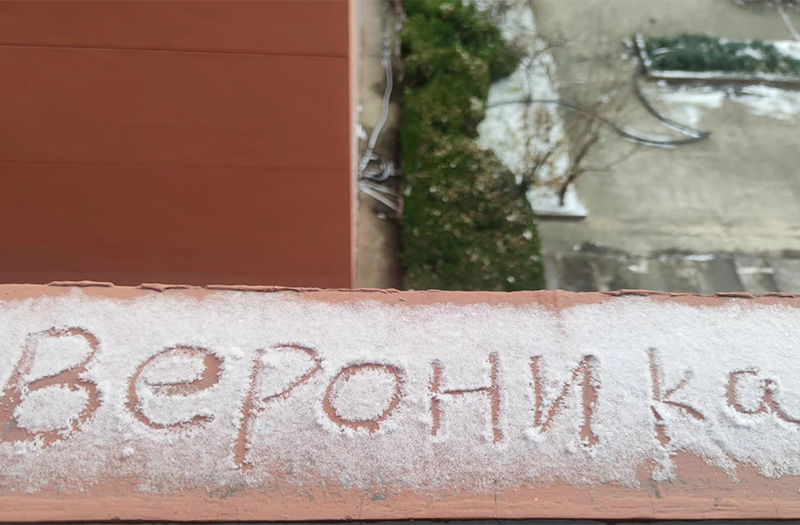 Вероника